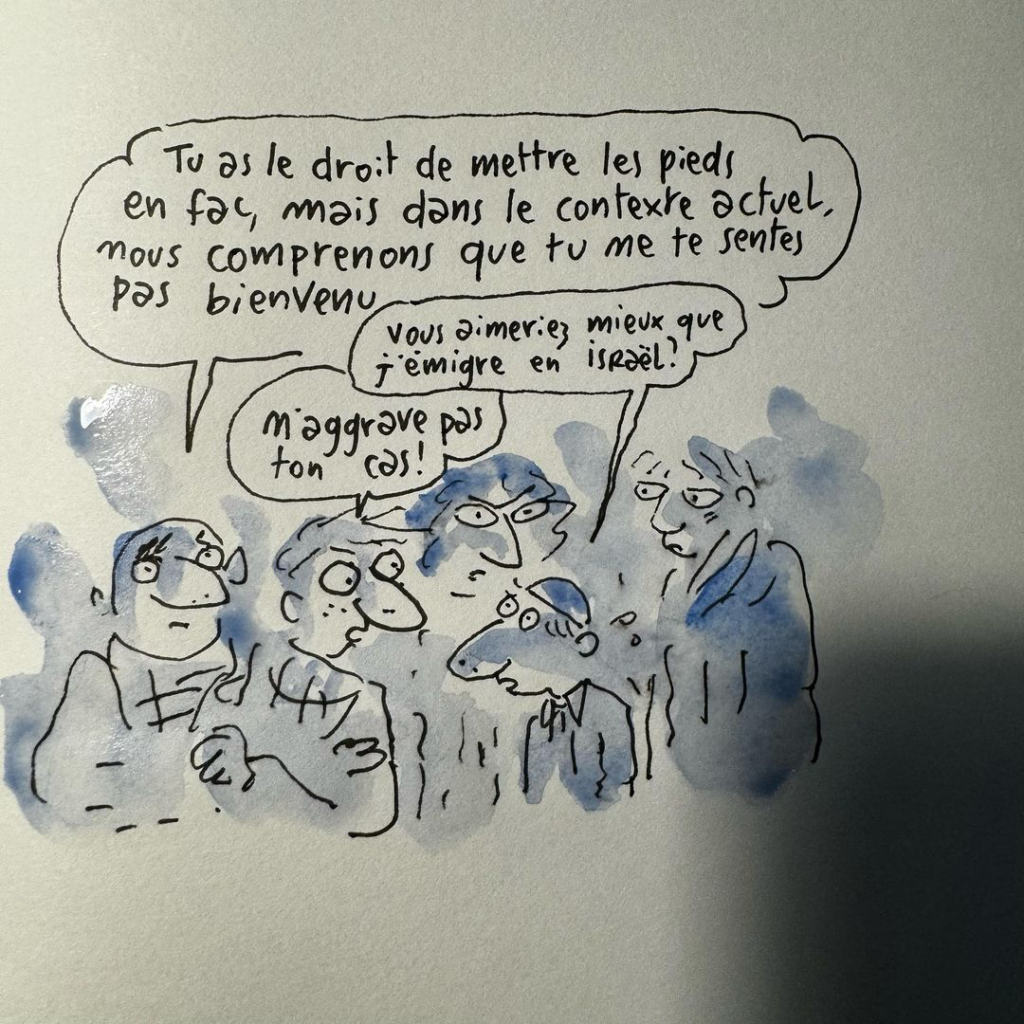 Tu as le droit de mettre les pieds
en fac, mais dans le contexte actuel,
nous comprenons que tu ne te sentes
pas bienvenu
vous aimeriez mieux que
j'émigre en israël?
n'aggrave pas
ton cas!